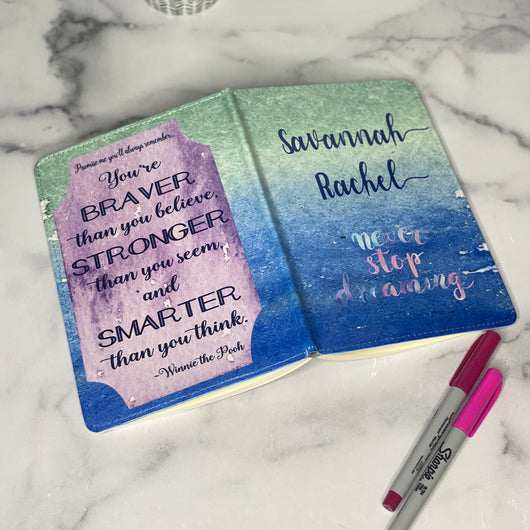 Promise me you'll always remember...
You're
BRAVER
than you believe,
STRONGER
than you seem,
and
SMARTER
than you think.
-Winnie the Pooh
Savannah
Rachel
never
stop
dreaming
Sharpie